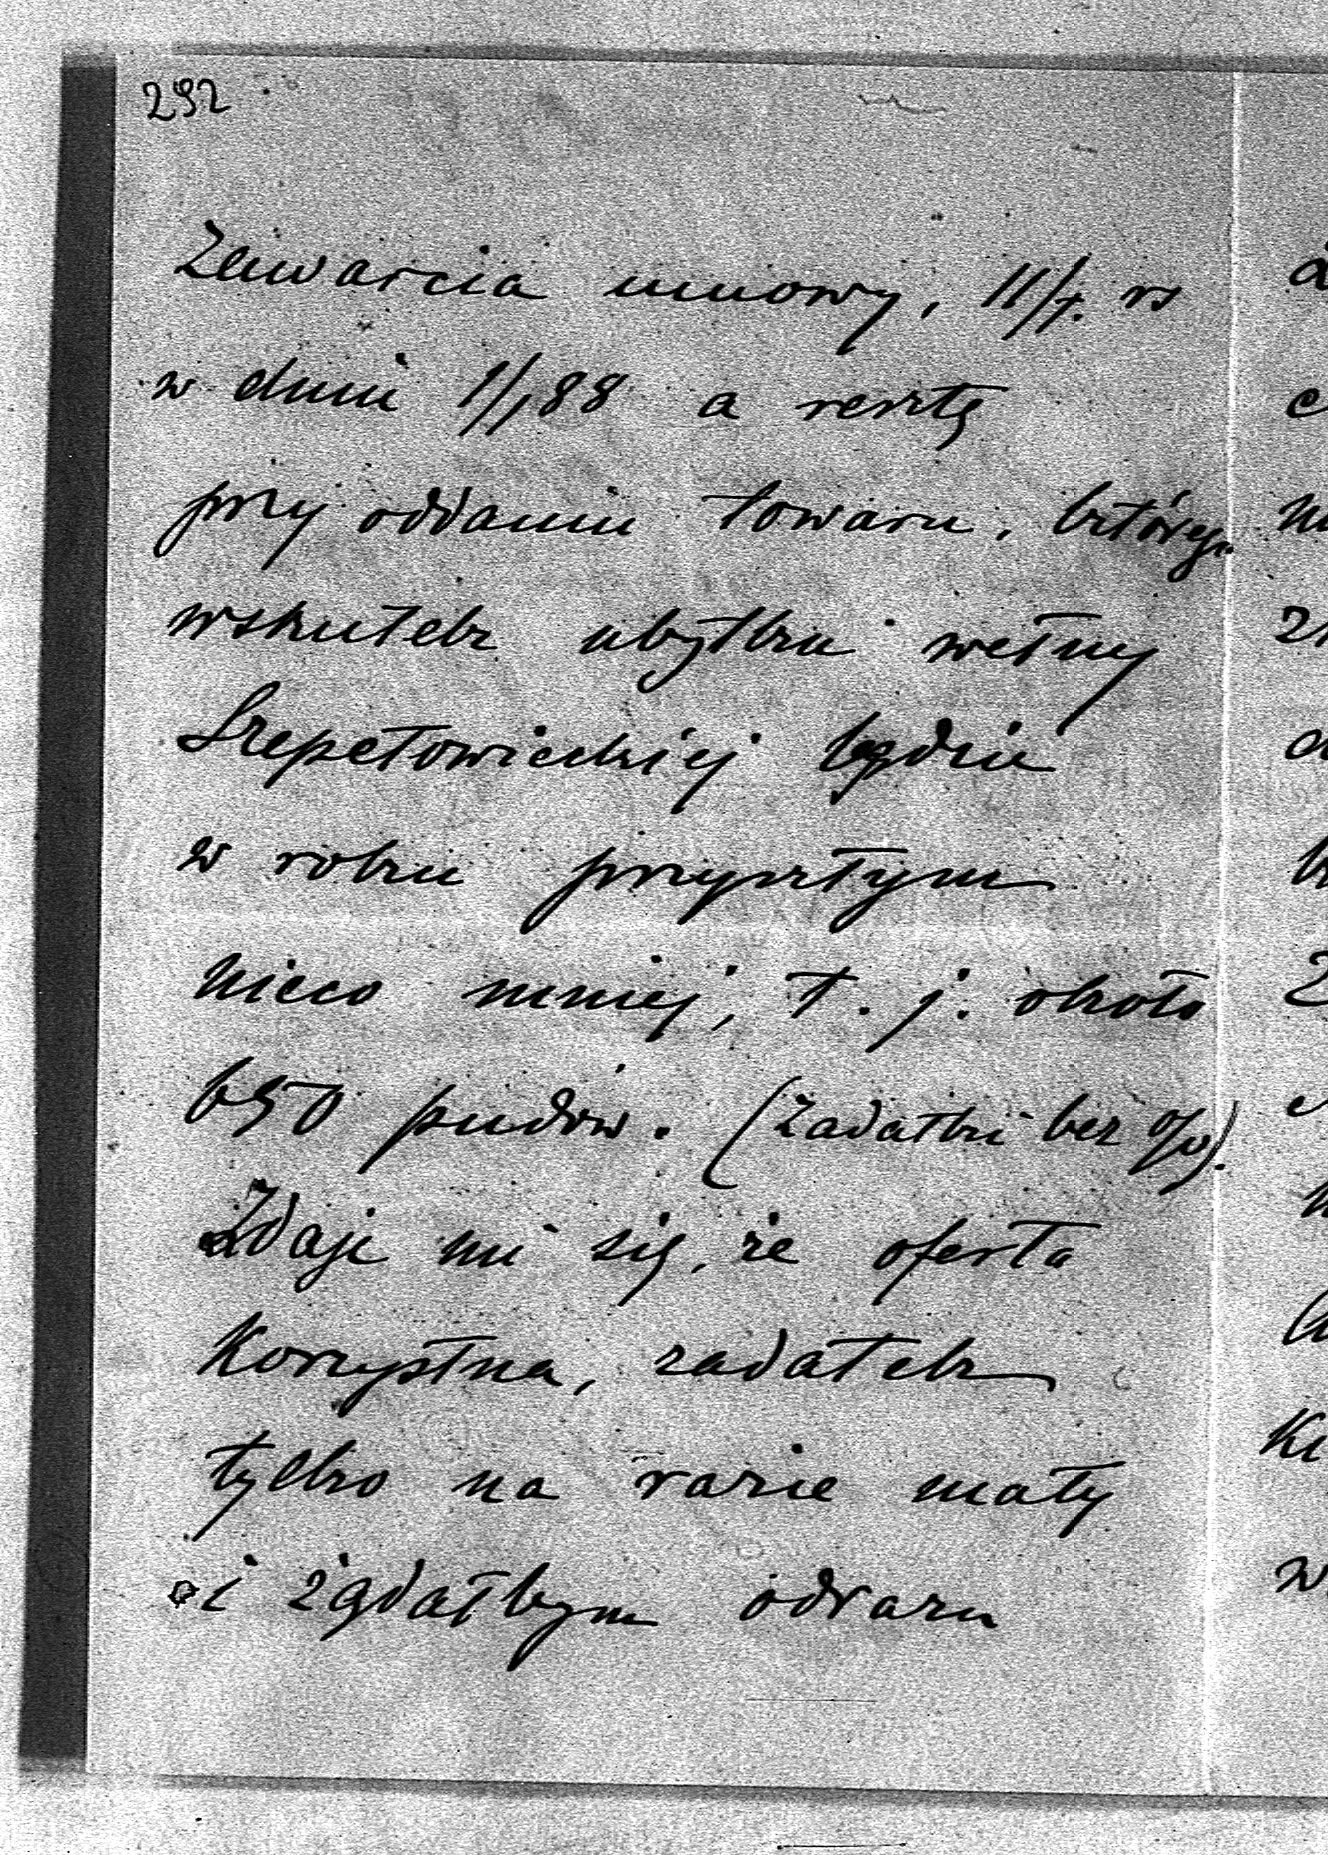 292
Zawarcia umowy, II/T. rs
w dniu 1/I 88 a resztę
przy oddaniu towaru, którego
wskutek ubytku wełny
Szepetowieckiej będzie
w roku przyszłym
nieco mniej, t. j. około
650 pudów. (Zadatki bez %).
Zdaje mi się, że oferta
Korzystna, zadatek
tylko na razie mały
i żądałbym odrazu